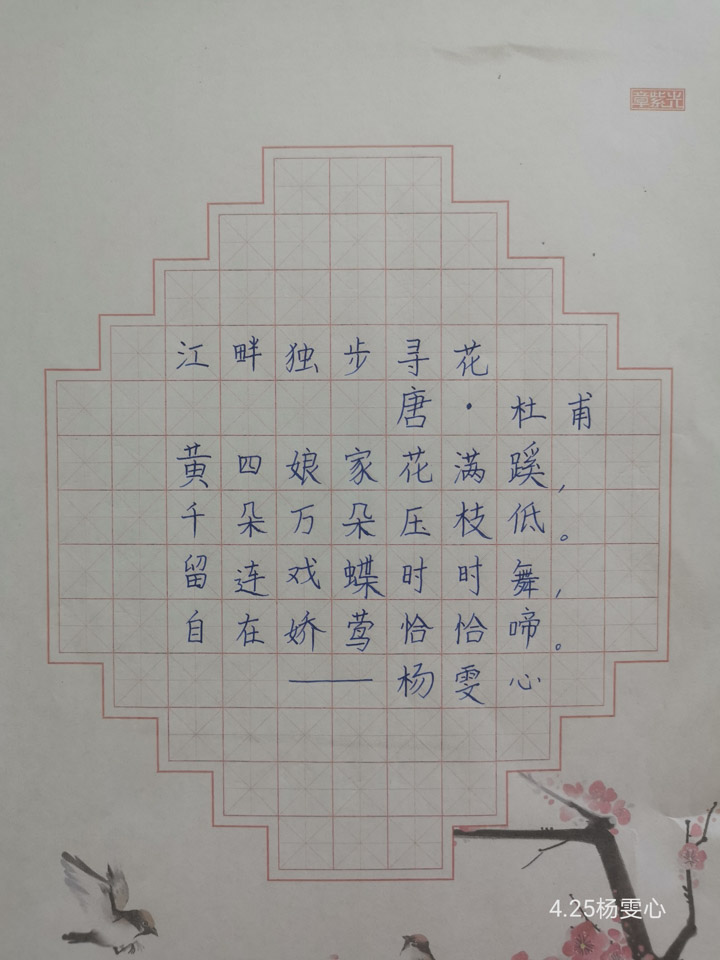 章紫光
江畔独步寻花
唐·杜甫
黄四娘家花满蹊，
千朵万朵压枝低。
留连戏蝶时时舞，
自在娇莺恰恰啼。
——杨雯心
4.25杨雯心